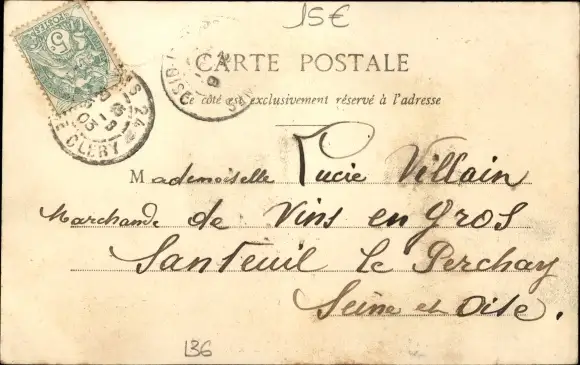 15€
5
CARTE POSTALE
Ce côté est exclusivement réservé à l'adresse
Mademoiselle Lucie Villain
Marchande de Vins en Gros
Santeuil le Perchay
Seine et Oise.
CLERY
03
136